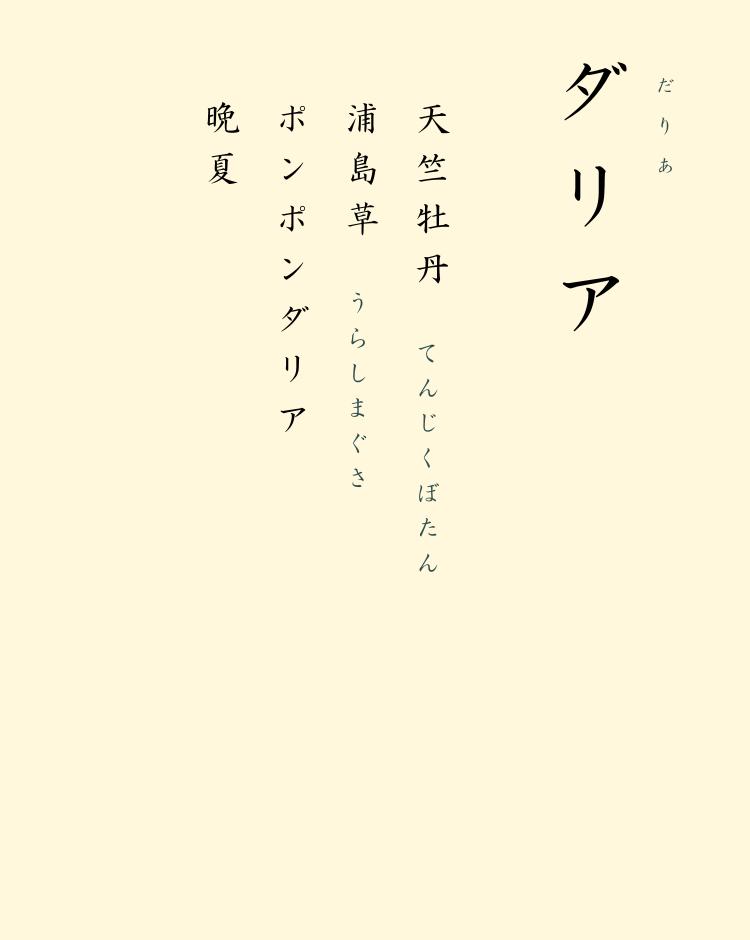 だりあ
ダリア
天竺牡丹 てんじくぼたん
浦島草 うらしまぐさ
ポンポンダリア
晩夏